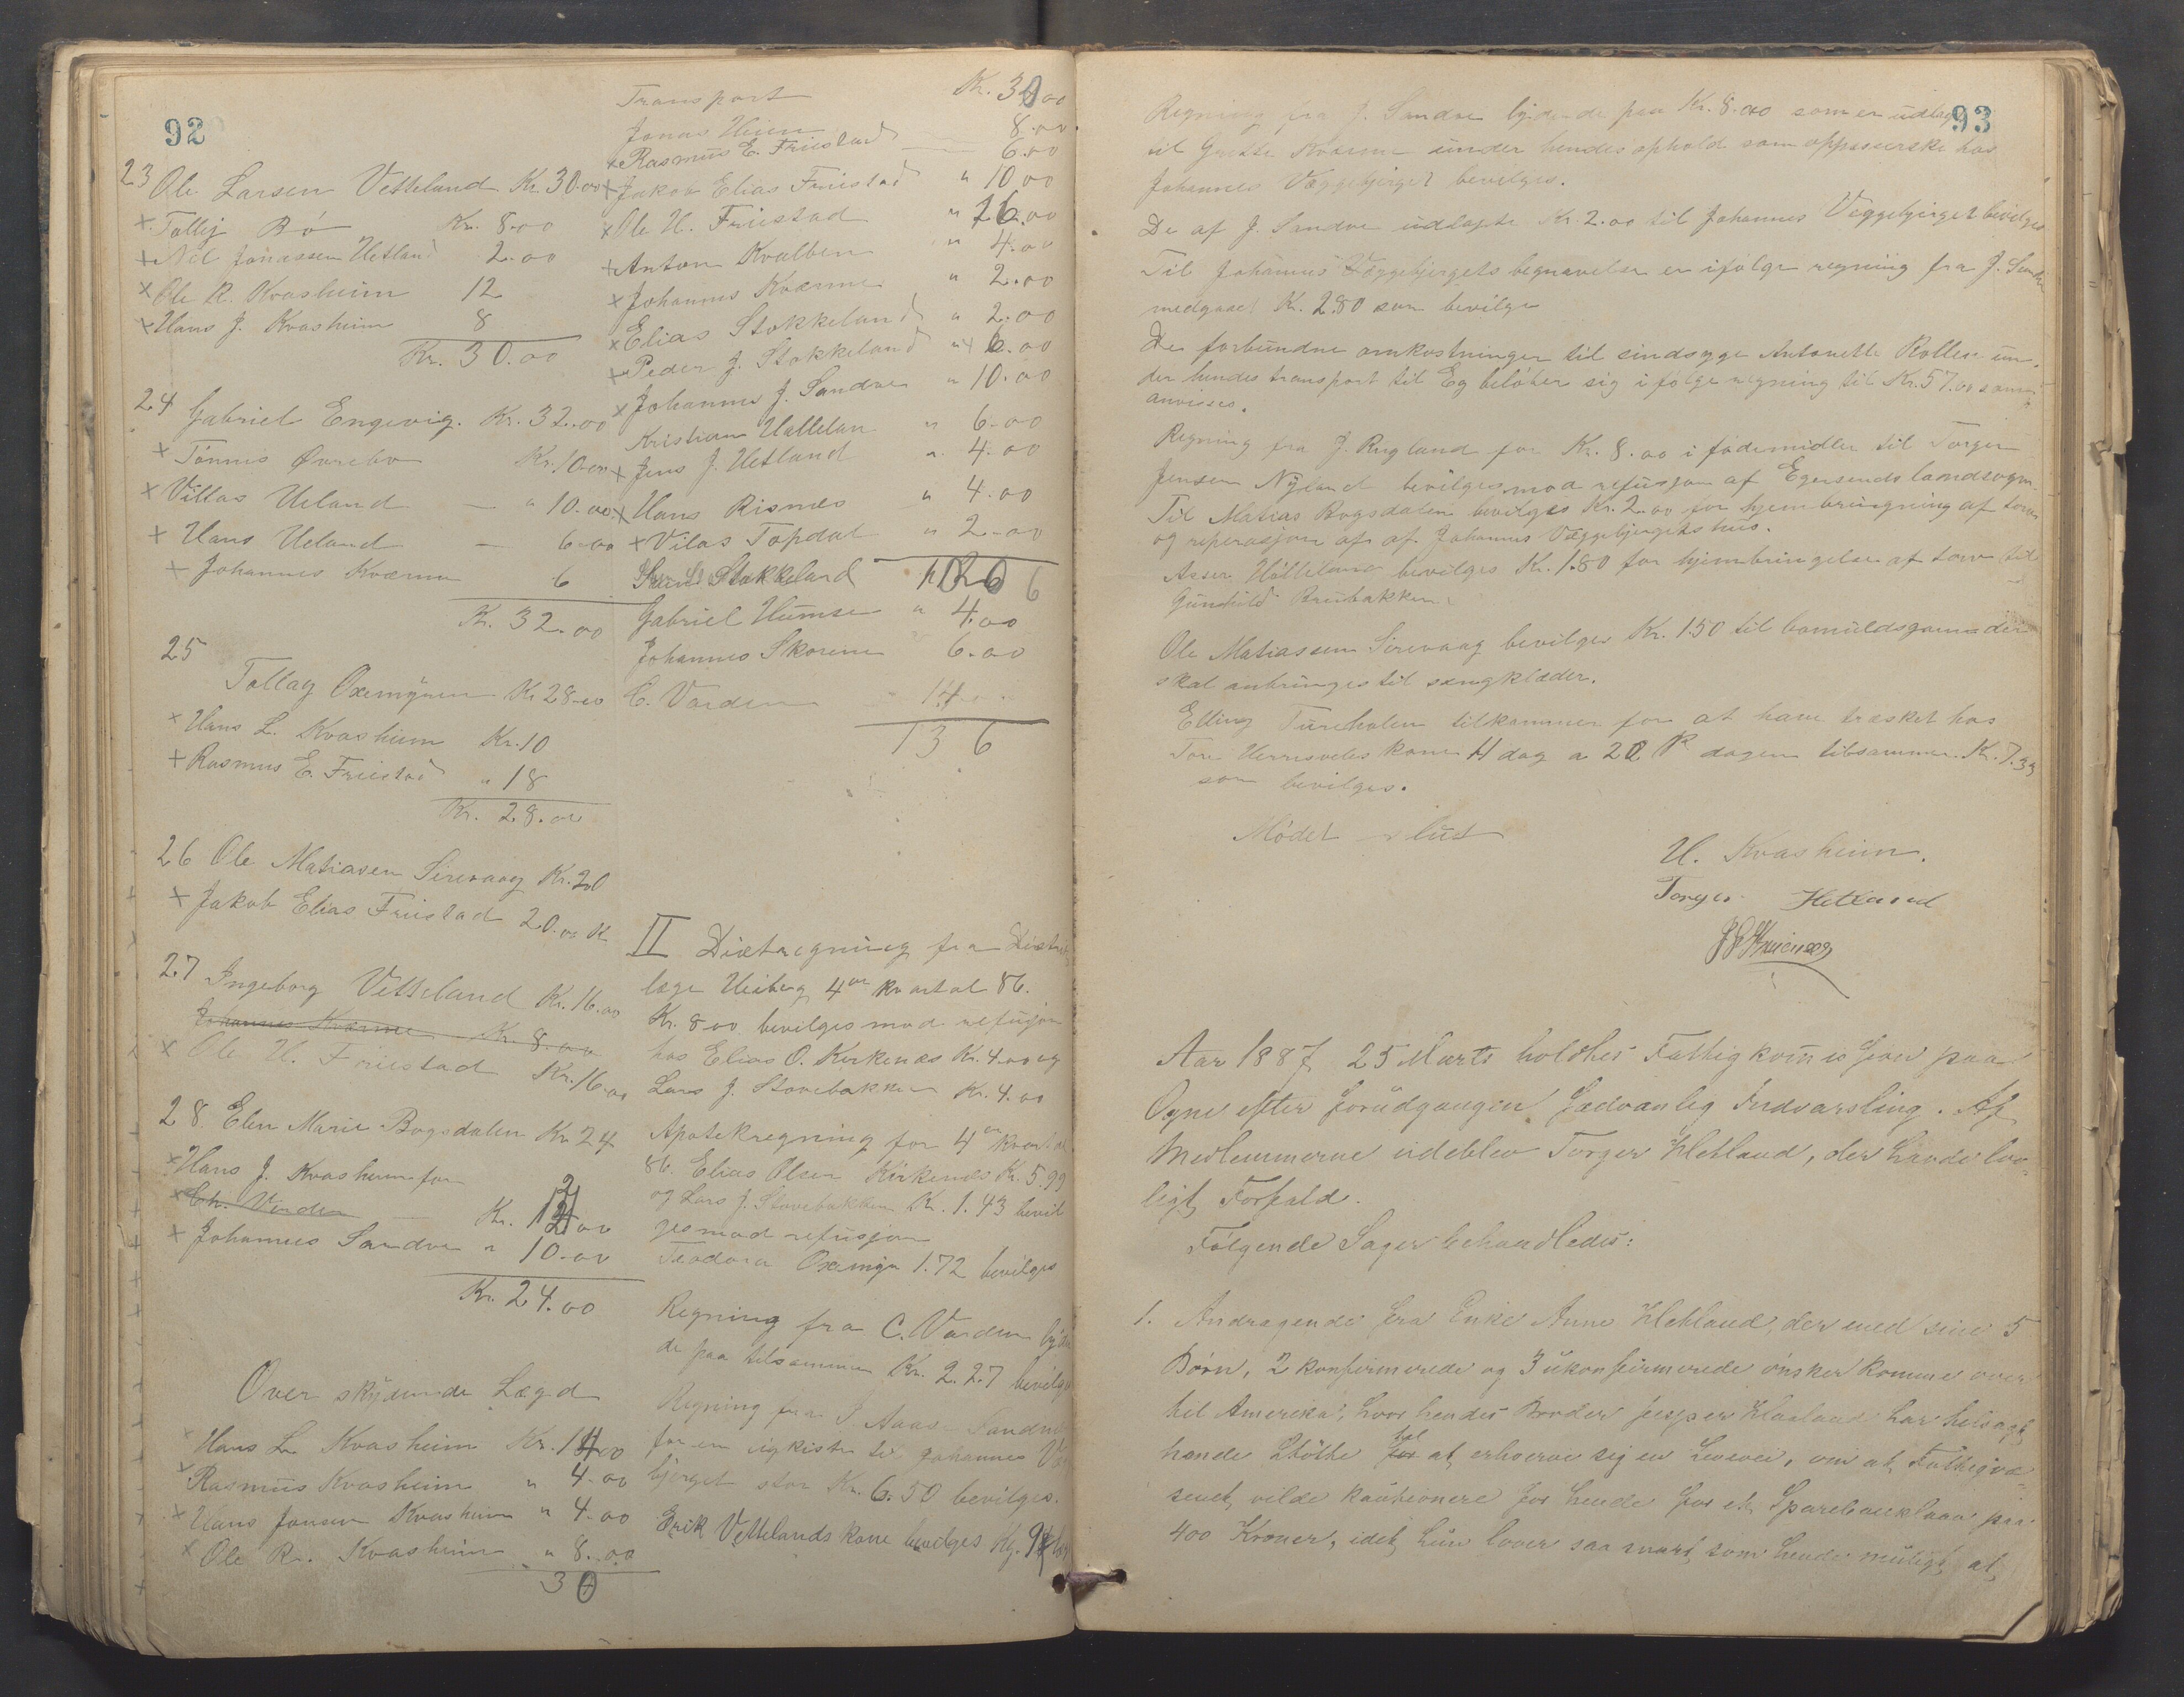 92
23 Ole Larsen Vetteland Kr. 30.00
x Tollej Bø Kr. 8.00
x Nil Jonassen Hetland 2.00
x Ole R. Kvasheim 12
x Hans J. Kvasheim 8
Kr. 30.00
24 Gabriel Engevig. Kr. 32.00
x Tønnes Øvrebø Kr. 10.00
x Villas Ueland — " 10.00
x Hans Ueland — 6.00
x Johannes Kværme 6
Kr. 32.00
25
Tollag Oxemyren Kr 28.00
x Hans L. Kvasheim Kr. 10
x Rasmus E. Friestad " 18
Kr. 28.00
26 Ole Matiasen Sirevaag Kr. 20
x Jakob Elias Friestad 20.00 K
27 Ingeborg Vetteland Kr. 16.00
Johannes Kværme Kr. 8.00
x Ole H. Friestad Kr. 16.00
28 Elen Marie Bogsdalen Kr 24
x Hans J. Kvasheim for
x Ch. Varden — Kr. 00
x Johannes Sandve " 10.00
Kr. 24.00
Over skydende Lægd
x Hans L. Kvasheim Kr. 14.00
x Rasmus Kvasheim " 4.00
x Hans Jonsen Kvasheim " 4.00
x Ole R. Kvasheim " 8.00
30
Transport Kr. 30.00
Jonas 8.00
x Rasmus E. Friestad — 6.00
x Jakob Elias Friestad " 10.00
x Ole H. Friestad " 26.00
x Anton Kvalben " 4.00
x Johannes Kværme " 2.00
x Elias Stokkeland " 2.00
x Peder J. Stokkeland " 6.00
x Johannes J. Sandve " 10.00
Kristian " 6.00
x Jens J. Hetland " 4.00
x Hans Risnes " 4.00
x Vilas Topdal " 2.00
Stokkeland 6
Gabriel Humse " 4.00
Johannes Skorene 6.00
C. Varden 14
136
II Diætregning fra Distrikts
læge Heiberg 4de kvartal 86.
Kr. 8.00 bevilges mod refusjon
hos Elias O. Kirkenes Kr. 4.00 og
Lars J. Stovebakken Kr. 4.00
Apotekregning for 4de kvartal
86. Elias Olsen Kirkenes Kr. 5.99
og Lars J. Stovebakken Kr. 1.43 bevil
ges mod refusjon
Teodora 1.72 bevilges
Regning fra C. Varden lyden
de paa tilsammen Kr. 2.27 bevilges
Regning fra J. Aaas Sandve
for en ligkiste til Johannes
bjerget stor Kr. 6.50 bevilges.
Erik Vettelands kone bevilges
93
Regning fra J. Sandve lydende paa Kr. 8.00 som er udlagt
til Grethe Kværme under hendes ophold som oppasserske hos
Johannes Væggebjerget bevilges.
De af J. Sandve udlagte Kr. 2.00 til Johannes Væggebjerget bevilges
Til Johannes Væggebjergets begravelse er ifølge regning fra J. Sandve
medgaaet Kr. 2.80 som bevilges
De forbundne omkostninger til sindsyge Antonette Rolles un-
der hendes transport til Eg beløber sig ifølge regning til Kr. 57.00 som
anvises.
Regning fra J. Rugland for Kr. 8.00 i fødemidler til Torger
Jensen Nyland bevilges mod refusjon af Egersunds landsogn.
Til Matias Bogsdalen bevilges Kr. 2.00 for hjembringning af torv
og reperasjon af af Johannes Væggebjergets hus.
Asser Hølleland bevilges Kr. 1.80 for hjembringelse af torv til
Gunhild Brubakken.
Ole Matiassen Sirevaag bevilges Kr. 1.50 til bomuldsgarn der
skal anbringes til sengklæder.
Elling Tureholen tilkommer for at have træsket hos
Tore kone 11 dag a 20 dagen tilsammen Kr. 7.33
som bevilges.
Mødet slut
H. Kvasheim.
Torger Hetland
Aar 1887 25 Marts holdtes Fattigkommisjon paa
Ogne efter forudgangen sædvanlig Indvarsling. Af
Medlemmerne udeblev Torger Hetland, der havde lov-
ligt Forfald.
Følgende Sager behandledes:
1. Andragende fra Enke Anne Hetland der med sine 5
Børn, 2 konfirmerede og 3 ukonfirmerede ønsker komme over
til Amerika, hvor hendes Broder Jesper Haaland har tilsagt
hende Støtte for til at erhverve sig en Levevei, om at Fattigvæ-
senet vilde kautionere for hende for et Sparebanklaan paa
400 Kroner, idet hun lover saa snart som hende muligt at